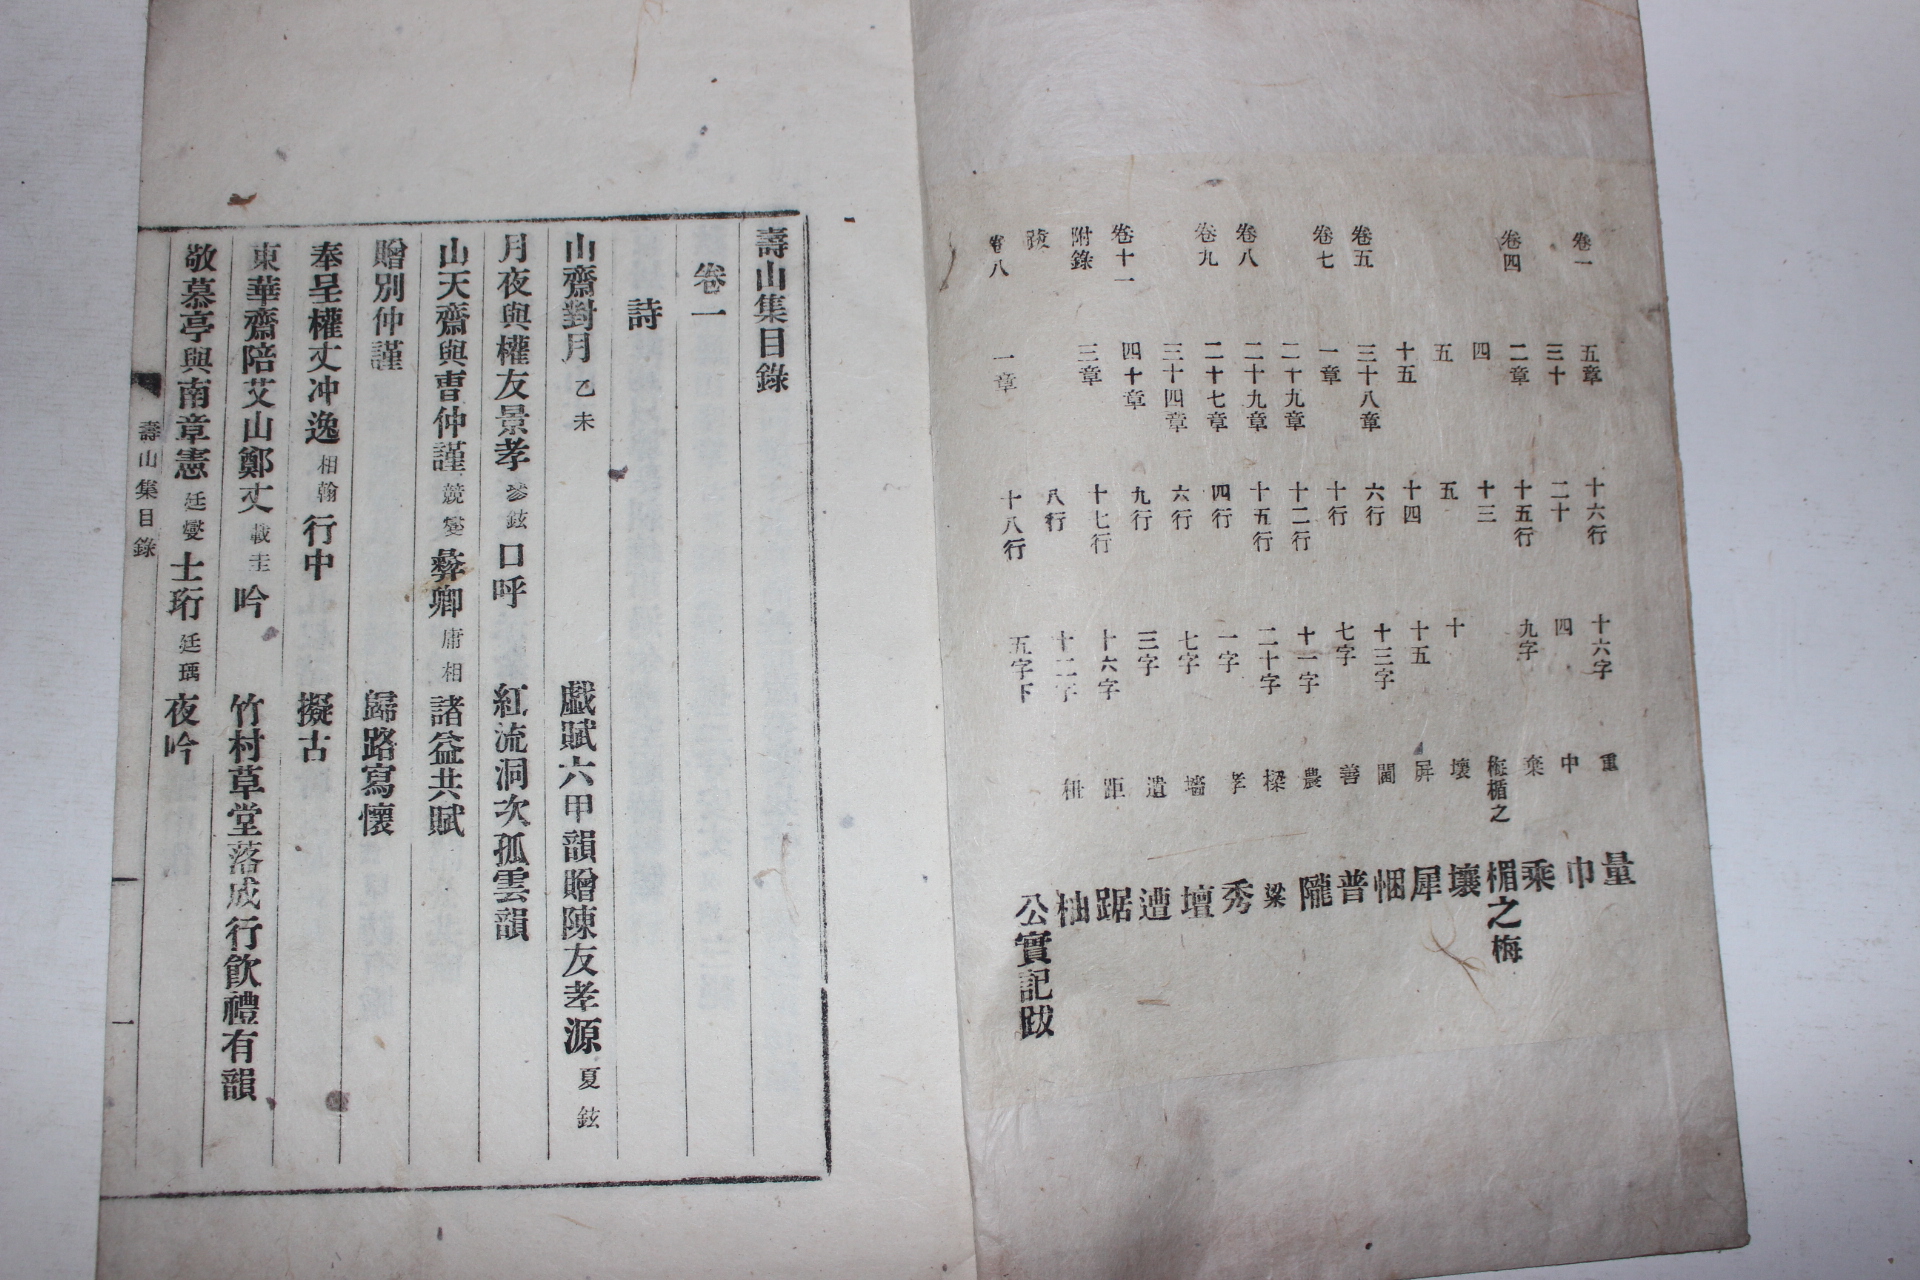 卷一 五章 十六行 十六字 重 量
三十 二十 四 中 巾
卷四 二章 十五行 九字 棄 乘
四 十三 梅楣之 楣之梅
五 五 十 壞 壤
十五 十四 十五 屛 犀
卷五 三十八章 六行 十三字 悃
卷七 一章 十行 七字 善 普
二十九章 十二行 十一字 農 隴
卷八 二十九章 十五行 二十字 樑 梁
卷九 二十七章 四行 一字 孝 秀
三十四章 六行 七字 墻 壇
卷十一 四十章 九行 三字 遣 遭
附錄 三章 十七行 十六字 距 踞
跋 八行 十二字 柚
卷八 一章 十八行 五字下 公實記跋
壽山集目錄
卷一
詩
山齋對月 乙未 戲賦六甲韻贈陳友孝源 夏鉉
月夜與權友景孝 鉉 口呼 紅流洞次孤雲韻
山天齋與曺仲謹 競燮 彝卿 庸相 諸益共賦
贈別仲謹 歸路寫懷
奉呈權丈冲逸 相翰 行中 擬古
東華齋陪艾山鄭丈 載圭 吟 竹村草堂落成行飮禮有韻
敬慕亭與南章憲 廷燮 士珩 廷瑀 夜吟
壽山集目錄 一